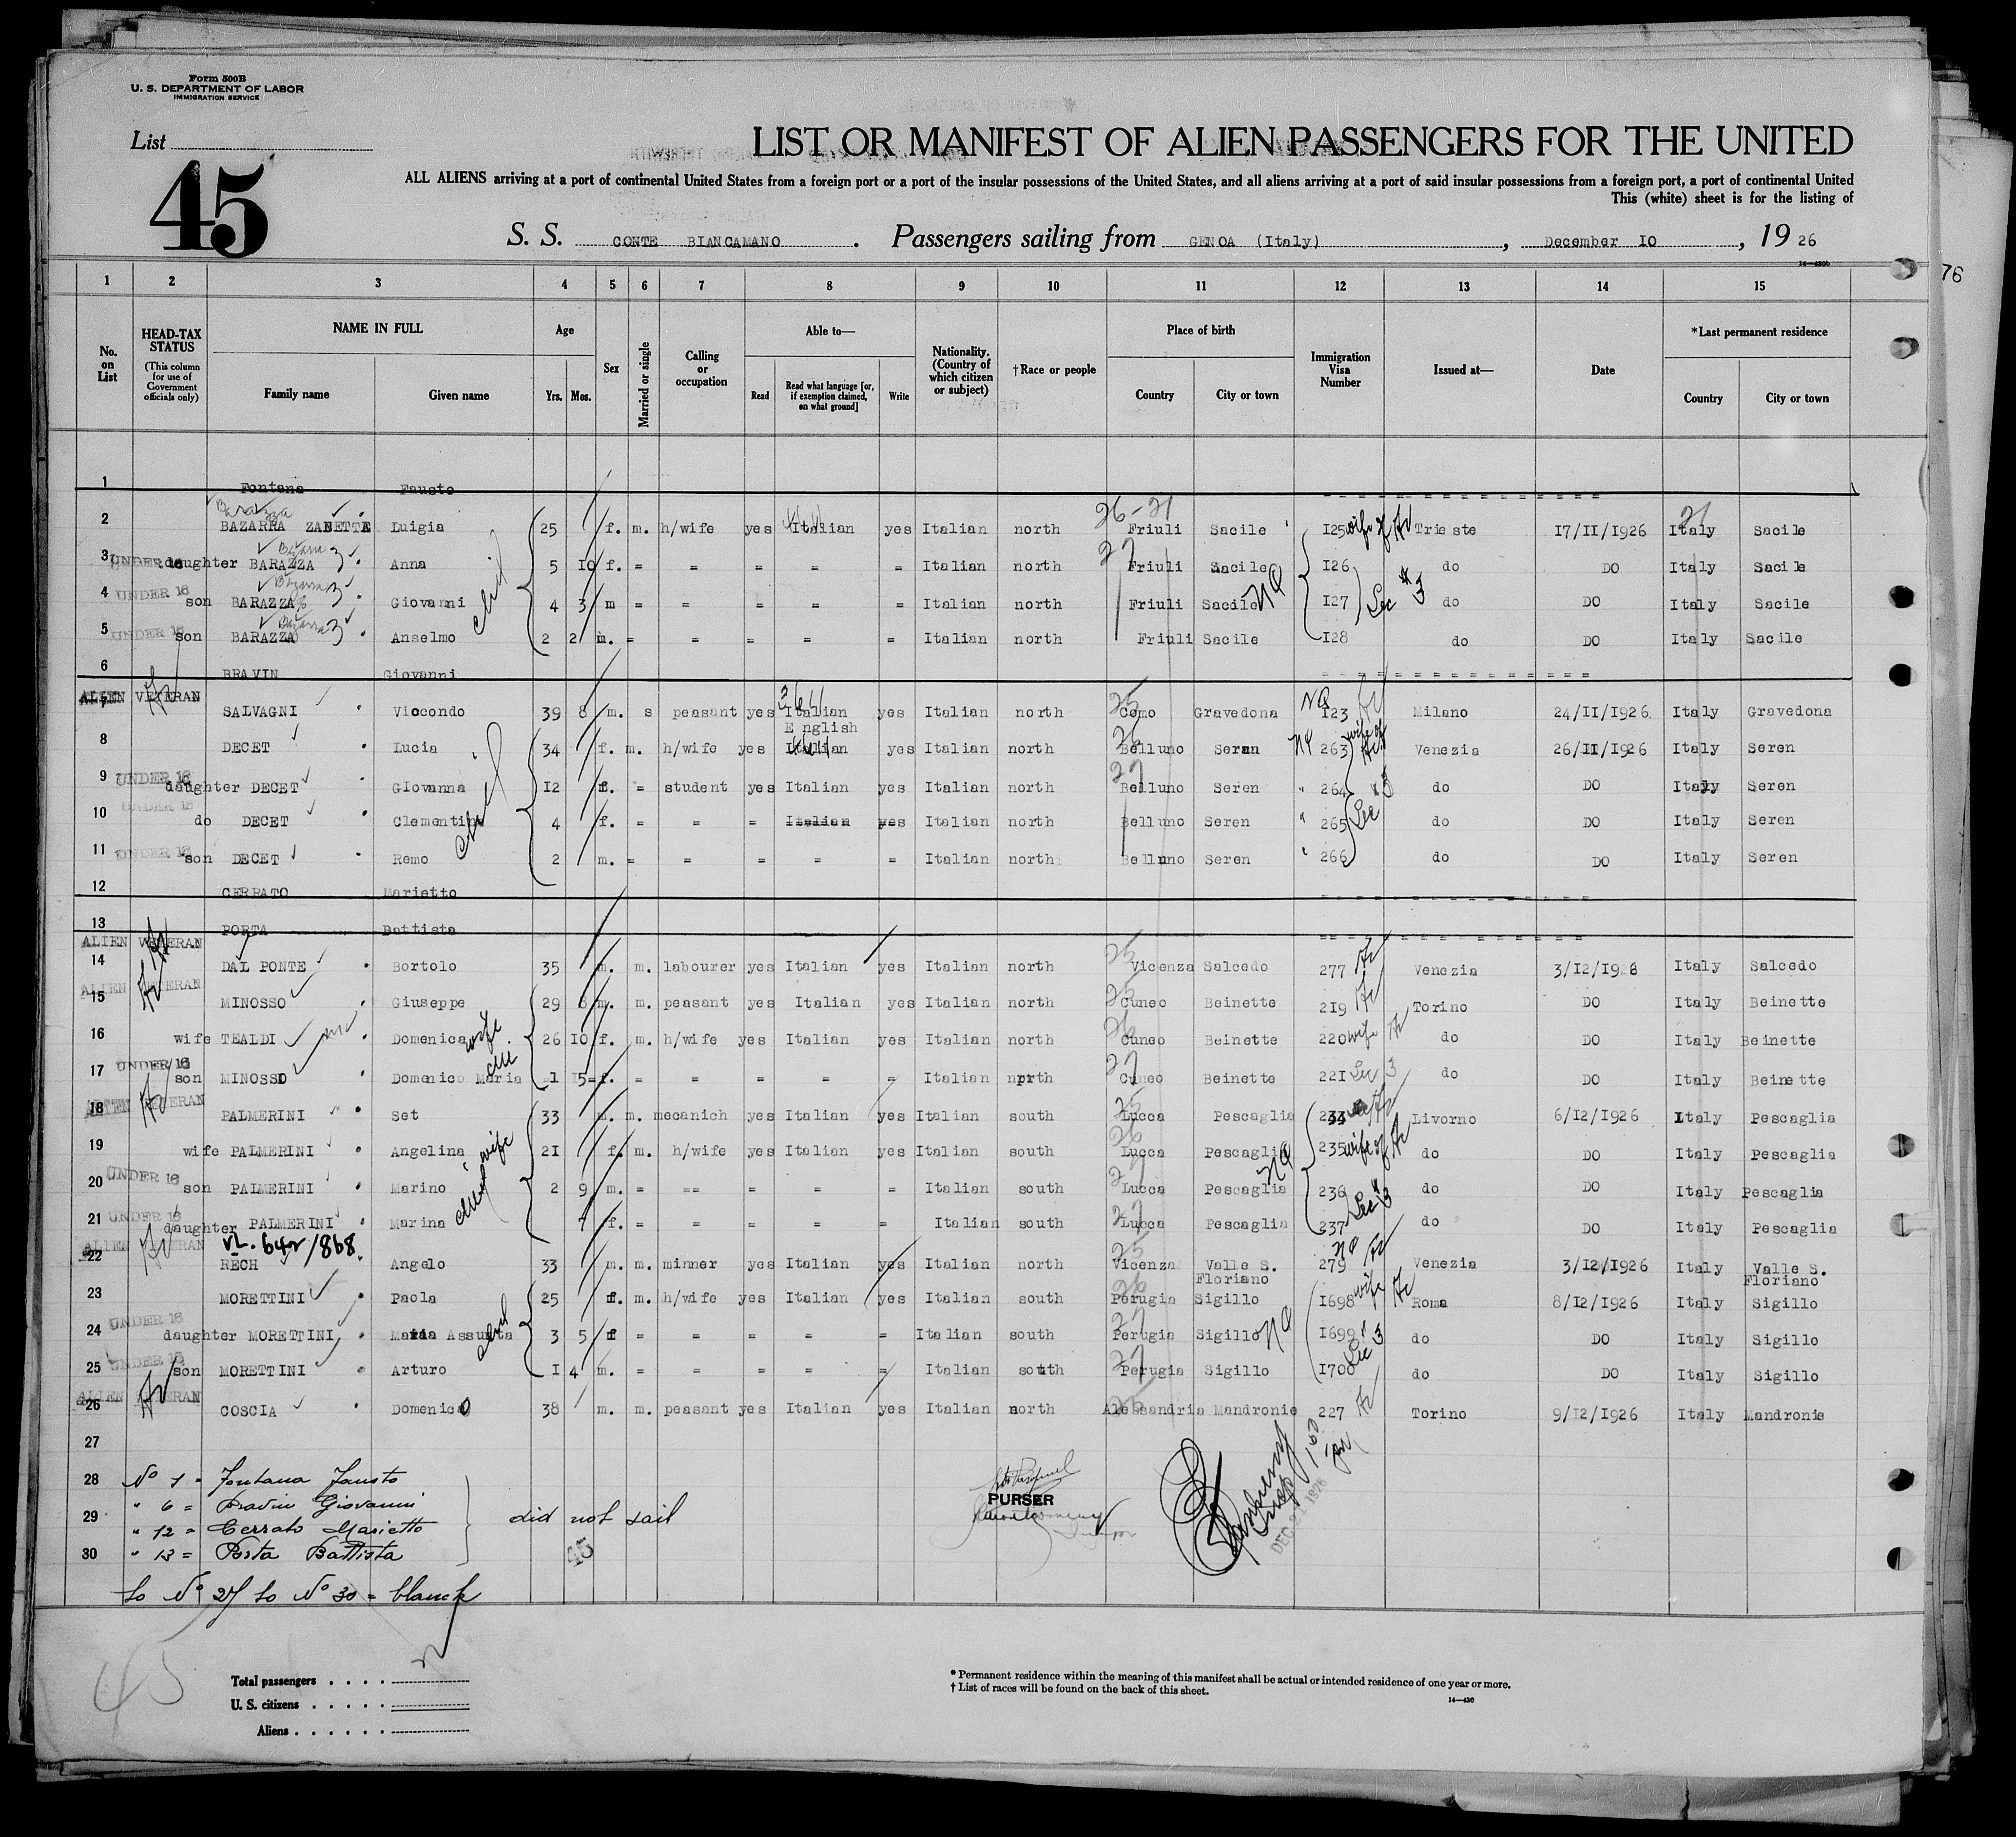 Form 500B
U. S. DEPARTMENT OF LABOR
IMMIGRATION SERVICE
List
45
LIST OR MANIFEST OF ALIEN PASSENGERS FOR THE UNITED
ALL ALIENS arriving at a port of continental United States from a foreign port or a port of the insular possessions of the United States, and all aliens arriving at a port of said insular possessions from a foreign port, a port of continental United
This (white) sheet is for the listing of
S. S. CONTE BIANCAMANO . Passengers sailing from GENOA (Italy) , December 10 , 19 26
76
1 2 3 4 5 6 7 8 9 10 11 12 13 14 15
No. on List
HEAD-TAX STATUS
(This column for use of Government officials only)
NAME IN FULL
Family name
Given name
Age
Yrs.
Mos.
Sex
Married or single
Calling or occupation
Able to—
Read
Read what language [or, if exemption claimed, on what ground]
Write
Nationality. (Country of which citizen or subject)
†Race or people
Place of birth
Country
City or town
Immigration Visa Number
Issued at—
Date
*Last permanent residence
Country
City or town
1 Fontana Fausto
Barazza
26-21 21
2 BAZARRA ZANETTE Luigia 25 f. m. h/wife yes Italian yes Italian north Friuli Sacile 125 wife of Trieste 17/11/1926 Italy Sacile
3 UNDER 16 daughter BARAZZA Anna 5 10 f. = = = = = Italian north Friuli Sacile 126 do DO Italy Sacile
4 UNDER 16 son BARAZZA Giovanni 4 3 m = = = = = Italian north Friuli Sacile 127 Sec 3 do DO Italy Sacile
5 UNDER 16 son BARAZZA Anselmo 2 2 m. = = = = = Italian north Friuli Sacile 128 do DO Italy Sacile
6 BRAVIN Giovanni
ALIEN VETERAN
7 SALVAGNI Viocondo 39 8 m. s peasant yes Italian yes Italian north Como Gravedona 123 Milano 24/11/1926 Italy Gravedona
English
8 DECET Lucia 34 f. m. h/wife yes Italian yes Italian north Belluno Seren 263 wife of Venezia 26/11/1926 Italy Seren
9 UNDER 16 daughter DECET Giovanna 12 f. = student yes Italian yes Italian north Belluno Seren " 264 do DO Italy Seren
10 UNDER 16 do DECET Clementina 4 f. = = = Italian yes Italian north Belluno Seren " 265 Sec do DO Italy Seren
11 UNDER 16 son DECET Remo 2 m. = = = = = Italian north Belluno Seren " 266 do DO Italy Seren
12 CERRATO Marietto
13 PORTA Battista
ALIEN VETERAN
14 DAL PONTE Bortolo 35 m. m. labourer yes Italian yes Italian north Vicenza Salcedo 277 Venezia 3/12/1926 Italy Salcedo
ALIEN VETERAN
15 MINOSSO Giuseppe 29 8 m. m. peasant yes Italian yes Italian north Cuneo Beinette 219 Torino DO Italy Beinette
16 wife TEALDI Domenica wife 26 10 f. m. h/wife yes Italian yes Italian north Cuneo Beinette 220 wife do DO Italy Beinette
17 UNDER 16 son MINOSSO Domenico Maria 1 15 f. = = = = = Italian north Cuneo Beinette 221 Sec 3 do DO Italy Beinette
ALIEN VETERAN
18 PALMERINI Set 33 m. m. mecanich yes Italian yes Italian south Lucca Pescaglia 234 Livorno 6/12/1926 Italy Pescaglia
19 wife PALMERINI Angelina wife 21 f. m. h/wife yes Italian yes Italian south Lucca Pescaglia 235 wife of do DO Italy Pescaglia
20 UNDER 16 son PALMERINI Marino 2 9 m. = == = = = Italian south Lucca Pescaglia 236 do DO Italy Pescaglia
21 UNDER 16 daughter PALMERINI Marina f. = = = = = Italian south Lucca Pescaglia 237 Sec 3 do DO Italy Pescaglia
ALIEN VETERAN VL. 642/868
22 RECH Angelo 33 m. m. minner yes Italian yes Italian north Vicenza Valle S. Floriano 279 Venezia 3/12/1926 Italy Valle S. Floriano
23 MORETTINI Paola 25 f. m. h/wife yes Italian yes Italian south Perugia Sigillo 1698 wife Roma 8/12/1926 Italy Sigillo
24 UNDER 16 daughter MORETTINI Maria Assunta 3 5 f = = = = = Italian south Perugia Sigillo 1699 do DO Italy Sigillo
25 UNDER 16 son MORETTINI Arturo 1 4 m. = = = = = Italian south Perugia Sigillo 1700 Sec 3 do DO Italy Sigillo
ALIEN VETERAN
26 COSCIA Domenico 38 m. m. peasant yes Italian yes Italian north Alessandria Mandronie 227 Torino 9/12/1926 Italy Mandronie
27
28 No 1 = Fontana Fausto
29 " 6 = Bravin Giovanni
" 12 = Cerrato Marietto
did not sail
30 " 13 = Porta Battista
to No 27 to No 30 = blanck
45
PURSER
DEC 21 1926
45
Total passengers
U. S. citizens
Aliens
*Permanent residence within the meaning of this manifest shall be actual or intended residence of one year or more.
†List of races will be found on the back of this sheet.
14—430